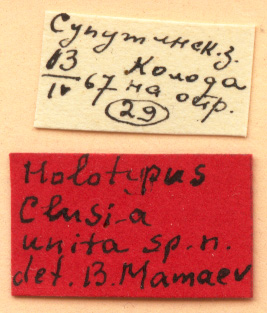 Супутинск.з.
13 Колода
IV 67 на остр.
29
Holotypus
Clusia
unita sp.n.
det. B. Mamaev